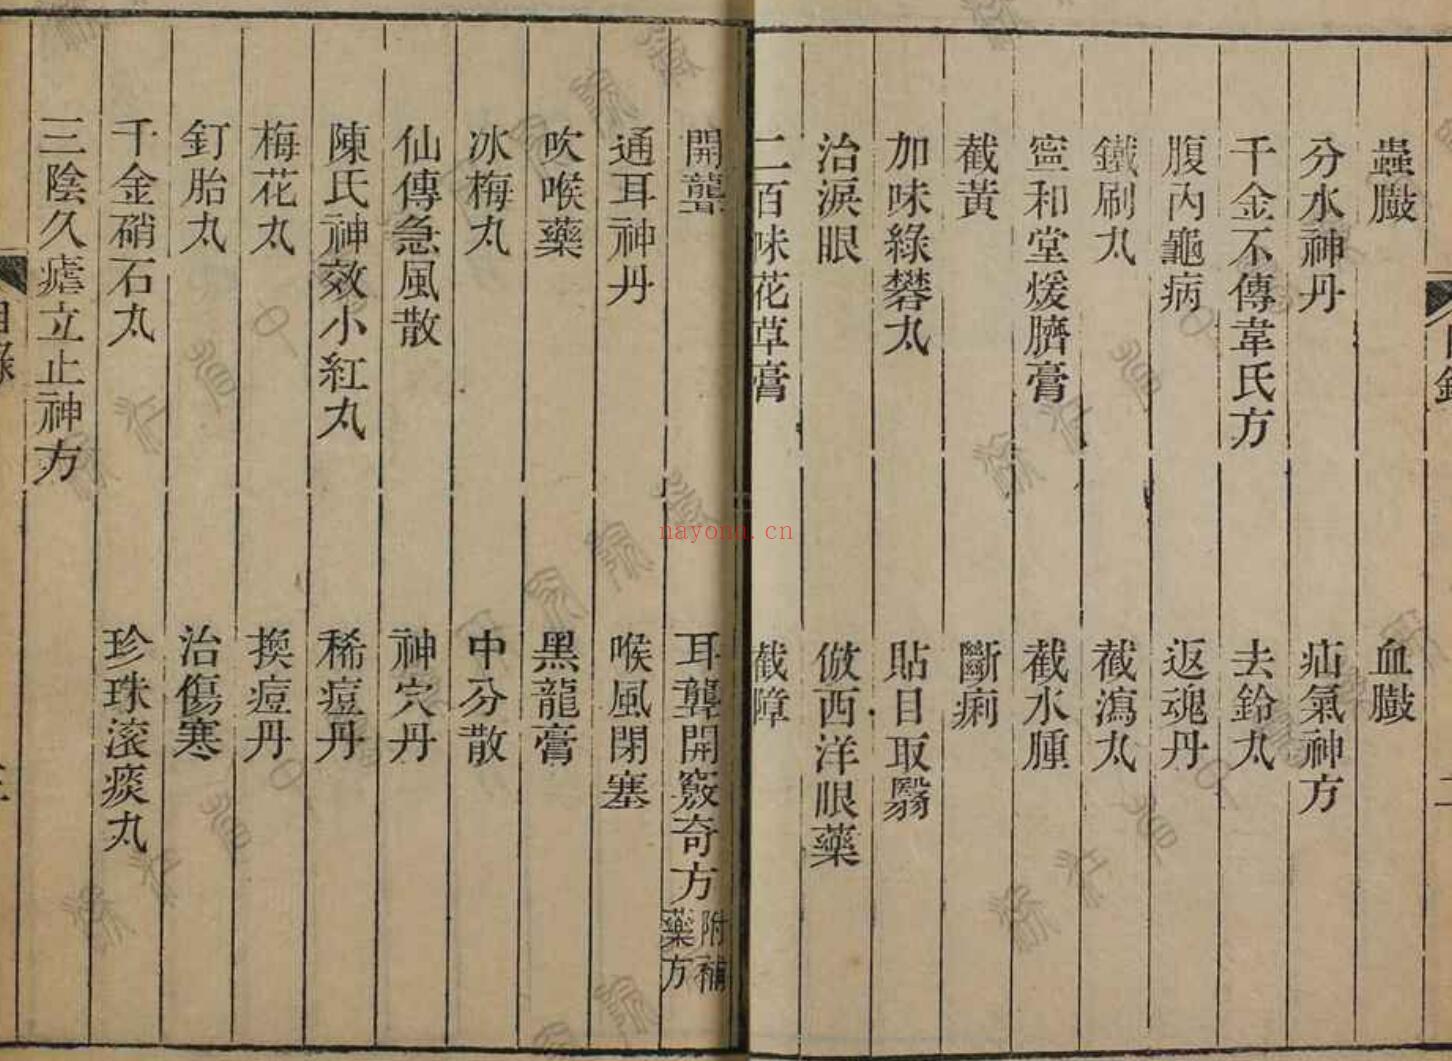 蟲臌　血臌
分水神丹　疝氣神方
千金不傳韋氏方　去鈴丸
腹內龜病　返魂丹
鐵刷丸　截瀉丸
寧和堂煖臍膏　截水腫
截黃　斷痢
加味綠礬丸　貼目取翳
治淚眼　倣西洋眼藥
二百味花草膏　截障
開聾　耳聾開竅奇方 附補藥方
通耳神丹　喉風閉塞
吹喉藥　黑龍膏
冰梅丸　中分散
仙傳急風散　神穴丹
陳氏神效小紅丸　稀痘丹
梅花丸　換痘丹
釘胎丸　治傷寒
千金硝石丸　珍珠滾痰丸
三陰久瘧立止神方
目錄
nayona.cn